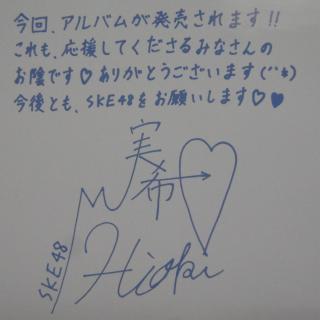 今回、アルバムが発売されます!!
これも、応援してくださるみなさんの
お陰です♡ありがとうございます(´`*)
今後とも、SKE48をお願いします♡♥
実希
Hioki
SKE48